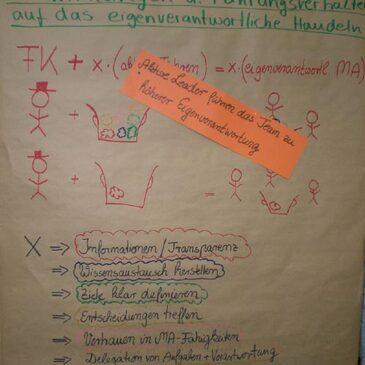 auf das eigenverantwortliche Handeln
FK + x·(ab führen) = x·(eigenverantwortl. MA)
Aktive Leader führen das Team zu
höherer Eigenverantwortung
+
+ =
X ⇒ Informationen/Transparenz
⇒ Wissensaustausch herstellen
⇒ Ziele klar definieren
⇒ Entscheidungen treffen
⇒ Vertrauen in MA-Fähigkeiten
⇒ Delegation von Aufgaben + Verantwortung